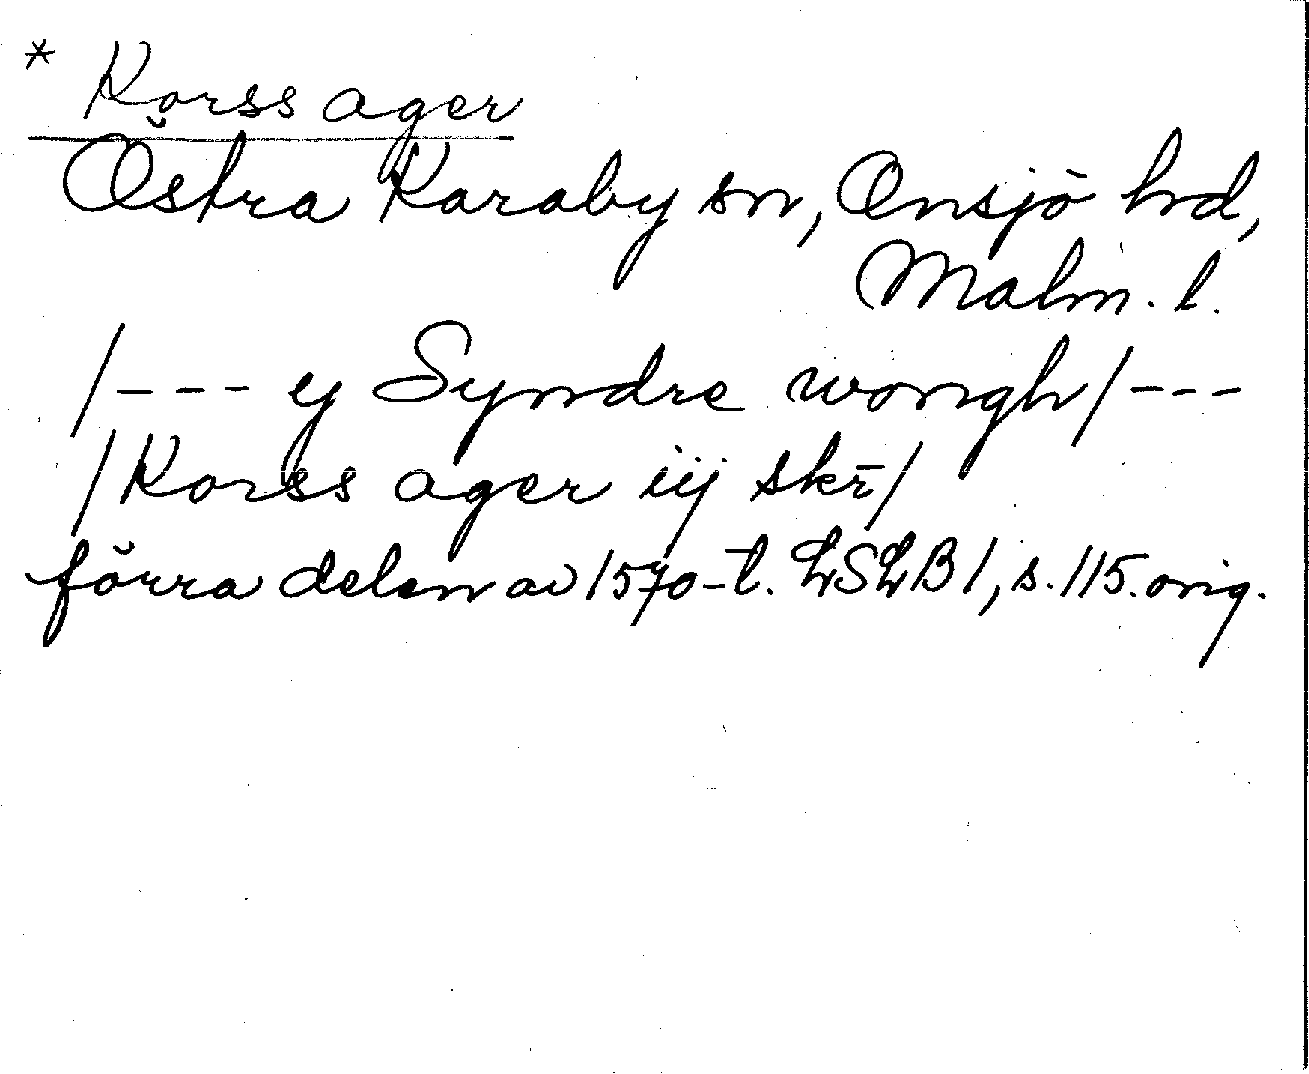 * Korss ager
Östra Karaby sn, Onsjö hrd,
Malm. l.
/--- ij Syndre wongh/---
/Korss ager iij skr̄/
förra delen av 1570-t. LSLB1, s. 115. orig.